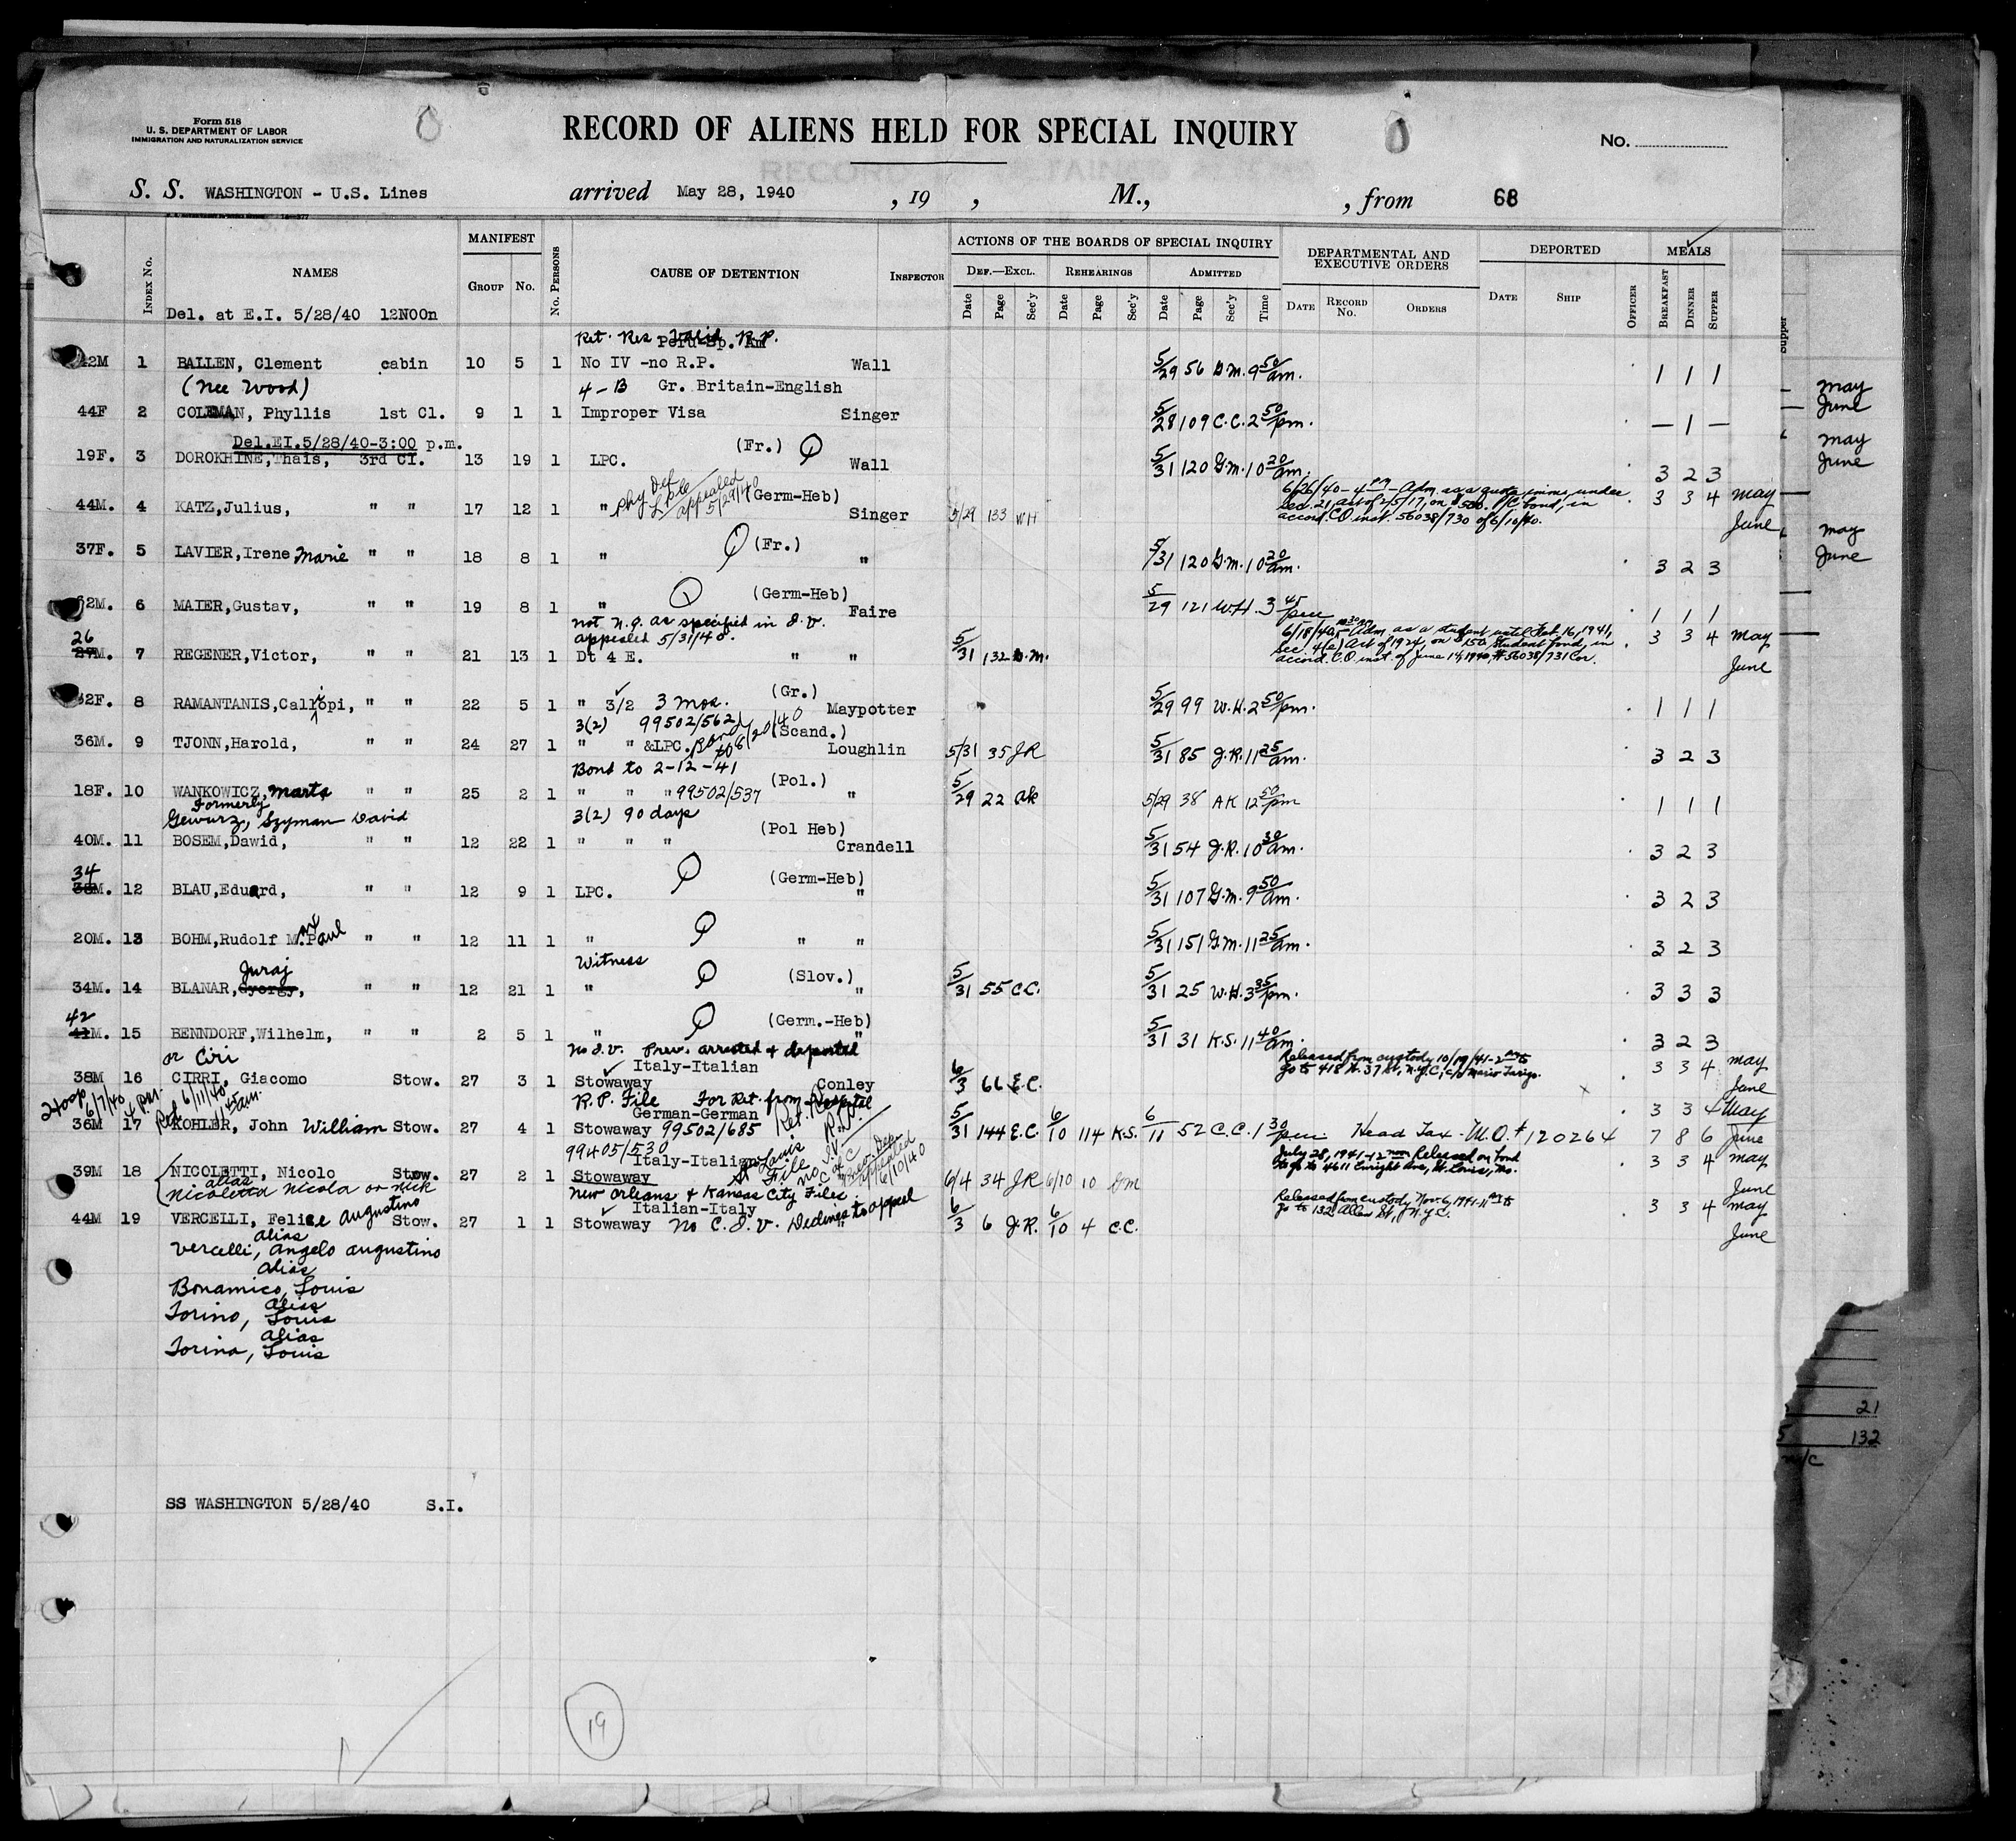 Form 518
U. S. DEPARTMENT OF LABOR
IMMIGRATION AND NATURALIZATION SERVICE
RECORD OF ALIENS HELD FOR SPECIAL INQUIRY
No.
S. S. WASHINGTON - U.S. Lines arrived May 28, 1940 , 19 , M., , from 68
INDEX No. NAMES MANIFEST GROUP No. No. PERSONS CAUSE OF DETENTION INSPECTOR ACTIONS OF THE BOARDS OF SPECIAL INQUIRY DEF.—EXCL. Date Page Sec'y REHEARINGS Date Page Sec'y ADMITTED Date Page Sec'y Time DEPARTMENTAL AND EXECUTIVE ORDERS DATE RECORD No. ORDERS DEPORTED DATE SHIP OFFICER MEALS BREAKFAST DINNER SUPPER
Del. at E.I. 5/28/40 12N00n
Ret. Res R.P.
42M 1 BALLEN, Clement cabin 10 5 1 No IV -no R.P. Wall 5/29 56 G.M. 9 50 am. 1 1 1
(nee Wood) 4-B Gr. Britain-English
44F 2 COLEMAN, Phyllis 1st Cl. 9 1 1 Improper Visa Singer 5/28 109 C.C. 2 50 pm. — 1 —
Del.EI.5/28/40-3:00 p.m. (Fr.)
19F. 3 DOROKHINE,Thais, 3rd Cl. 13 19 1 LPC. Wall 5/31 120 G.M. 10 20 am. 3 2 3
Phy Def LPC appealed 5/29/40 (Germ-Heb)
44M. 4 KATZ,Julius, " " 17 12 1 " Singer 5/29 133 WH 3 3 4 May
6/26/40-4 pm-Adm. as a quota imm. under
sec. 21, act of 2/5/17, on $500. P/C bond, in
accord. C.O. inst. 56038/730 of 6/10/40.
June
37F. 5 LAVIER,Irene Marie " " 18 8 1 " (Fr.) " 5/31 120 G.M. 10 20 am. 3 2 3
(Germ-Heb)
62M. 6 MAIER,Gustav, " " 19 8 1 " Faire 5/29 121 W.H. 3 45 pm 1 1 1
not n.q. as specified in I.V.
appealed 5/31/40.
26
27M. 7 REGENER,Victor, " " 21 13 1 Dt 4 E. " " 5/31 132 G.M. 3 3 4 May
6/18/40 Adm. as a student until Feb. 16, 1941,
sec. 4(e) Act of 1924, on $150. student bond, in
accord. C.O. inst. of June 14, 1940, # 56038/731 Cor.
June
32F. 8 RAMANTANIS,Calliopi, " " 22 5 1 " 3/2 3 mos. (Gr.) Maypotter 5/29 99 W.H. 2 50 pm. 1 1 1
3(2) 99502/562 (Scand.)
36M. 9 TJONN,Harold, " " 24 27 1 " " &LPC. Bond to 6/20/40 Loughlin 5/31 35 JR 5/31 85 J.R. 11 25 am. 3 2 3
Bond to 2-12-41 (Pol.)
18F. 10 WANKOWICZ, Marta " " 25 2 1 " " " 99502/537 " 5/29 22 AK 5/29 38 AK 12 50 pm 1 1 1
Formerly
Gewurz, Szyman David 3(2) 90 days (Pol Heb)
40M. 11 BOSEM,Dawid, " " 12 22 1 " " " Crandell 5/31 54 J.R. 10 30 am. 3 2 3
34 (Germ-Heb)
12 BLAU,Eduard, " " 12 9 1 LPC. " 5/31 107 G.M. 9 50 am. 3 2 3
20M. 13 BOHM,Rudolf M. Paul " " 12 11 1 " " " 5/31 151 G.M. 11 25 am. 3 2 3
Juraj Witness (Slov.)
34M. 14 BLANAR,Gyorgy, " " 12 21 1 " " 5/31 55 C.C. 5/31 25 W.H. 3 35 pm. 3 3 3
42 (Germ.-Heb)
41M. 15 BENNDORF,Wilhelm, " " 2 5 1 " " 5/31 31 K.S. 11 40 am. 3 2 3
or Ciri no I.V. Prev. arrested & deported
Italy-Italian
38M 16 CIRRI, Giacomo Stow. 27 3 1 Stowaway Conley 6/3 66 E.C. 3 3 4 May
Released from custody 10/19/41-2 pm to
go to 418 W. 37 St., N.Y.C., c/o Mario Tarigo.
June
R.P. File For Ret. from Hospital
German-German 3 3 4 May
36M 17 KOHLER, John William Stow. 27 4 1 Stowaway 99502/685 5/31 144 E.C. 6/10 114 K.S. 6/11 52 C.C. 1 30 pm Head Tax - M.O. # 120264 7 8 6 June
99405/530
Italy-Italian
39M 18 NICOLETTI, Nicolo Stow. 27 2 1 Stowaway St Louis File no I.V. C of C Prev. Dep. appealed 6/10/40 6/4 34 JR 6/10 10 GM 3 3 4 May
July 28, 1941-12 noon Released on bond
to go to 4611 Enright Ave, St. Louis, Mo.
June
alias
Nicoletta Nicola or Nick New Orleans & Kansas City Files.
Italian-Italy
44M 19 VERCELLI, Felice Augustino Stow. 27 1 1 Stowaway No C. I. V. Declines to appeal 6/3 6 J.R. 6/10 4 C.C. 3 3 4 May
Released from custody Nov. 6, 1941-11 am to
go to 132 Allen St., N.Y.C.
June
alias
Vercelli, Angelo Augustino
alias
Bonamico, Louis
alias
Torino, Louis
alias
Torina, Louis
SS WASHINGTON 5/28/40 S.I.
19
Supper
May
June
May
June
May
June
21
132